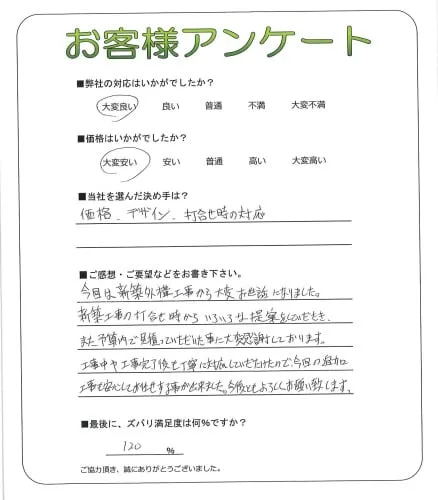 お客様アンケート
■弊社の対応はいかがでしたか？
大変良い 良い 普通 不満 大変不満
■価格はいかがでしたか？
大変安い 安い 普通 高い 大変高い
■当社を選んだ決め手は？
価格、デザイン、打合せ時の対応
■ご感想・ご要望などをお書き下さい。
今回は新築外構工事から大変お世話になりました。
新築工事の打合せ時からいろいろな提案をしていただき、
また予算内で見積っていただいた事に大変感謝しております。
工事中や工事完了後も丁寧に対応していただけたので、今回の追加
工事も安心してお任せする事が出来ました。今後ともよろしくお願い致します。
■最後に、ズバリ満足度は何％ですか？
120 ％
ご協力頂き、誠にありがとうございました。